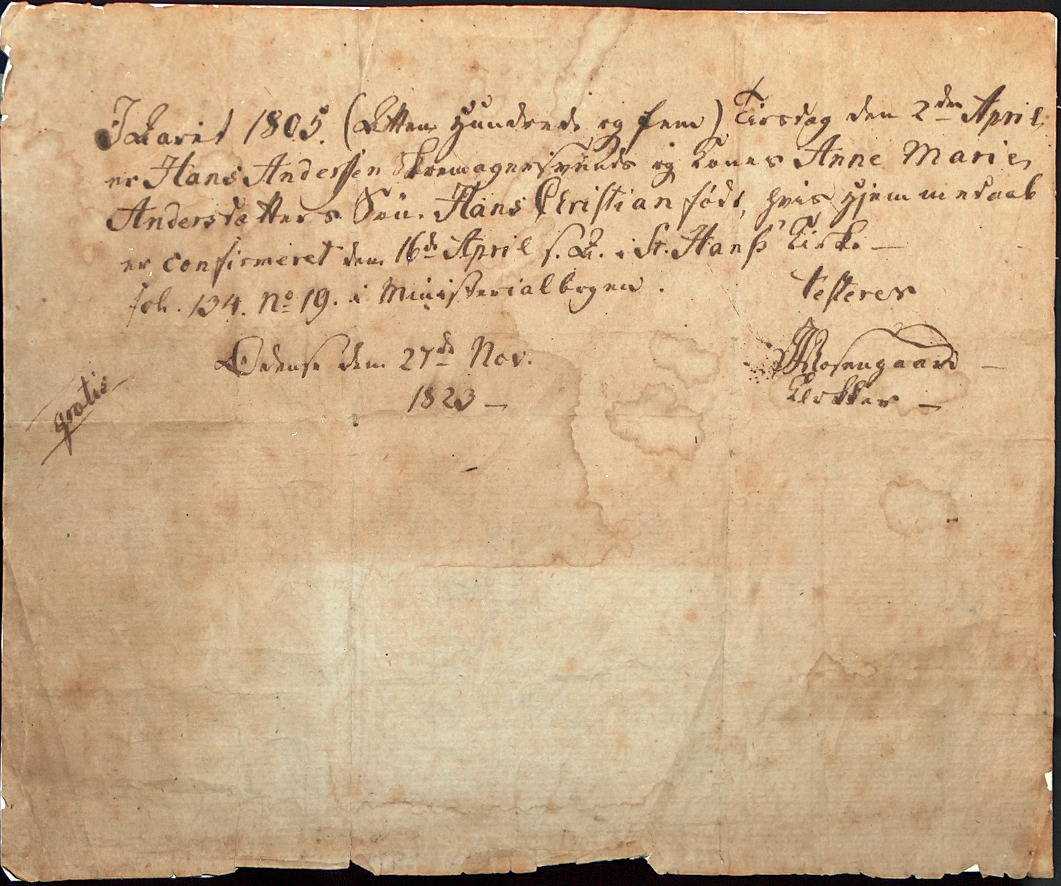 I Aaret 1805. (Atten Hundrede og fem) Tirsdag den 2den April
er Hans Andersen Skomagersvends og Kones Anne Marie
Andersdatters Søn. Hans Christian født, hvis Hjemmedaab
er confirmeret den 16de April s. A. i St. Hans' Kirke —
fol. 134. No 19. i Ministerialbogen.
testeres
Odense den 27de Nov.
1823 —
Rosengaard —
Klokker —
gratis